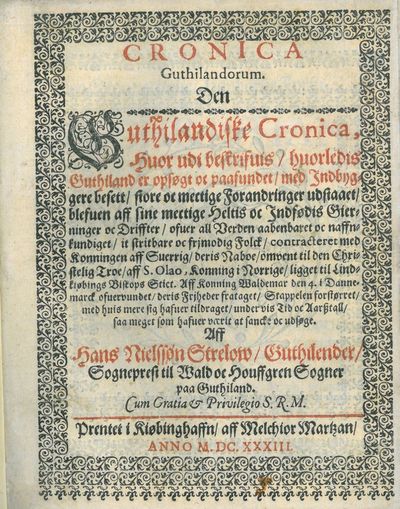 CRONICA
Guthilandorum.
Den
Guthilandiske Cronica,
Huor udi beskrifuis / huorledis
Guthiland er opsøgt oc paafundet / med Indbyg-
gere besett / store oc mectige Forandringer udstaaet /
blefuen aff sine mectige Heltis oc Indfødis Gier-
ninger oc Driffter / ofuer all Verden aabenbaret oc naffn-
kundiget / it stritbare oc frjmodig Folck / contracteret med
Konningen aff Suerrig / deris Naboe / omvent til den Chri-
stelig Troe / aff S. Olao, Konning i Norrige / ligget til Lind-
kiøbings Biskops Stict. Aff Konning Waldemar den 4. i Danne-
marck ofuervundet / deris Friheder frataget / Stappelen forstørret /
med huis mere sig hafuer tildraget / under vis Tid oc Aarstall /
saa meget som hafuer værit at sancke oc udsøge.
Aff
Hans Nielssøn Strelow / Guthilender /
Sogneprest til Wald oc Houffgren Sogner
paa Guthiland.
Cum Gratia & Privilegio S. R. M.
Prentet i Kiøbinghaffn / aff Melchior Martzan /
ANNO M. DC. XXXIII.